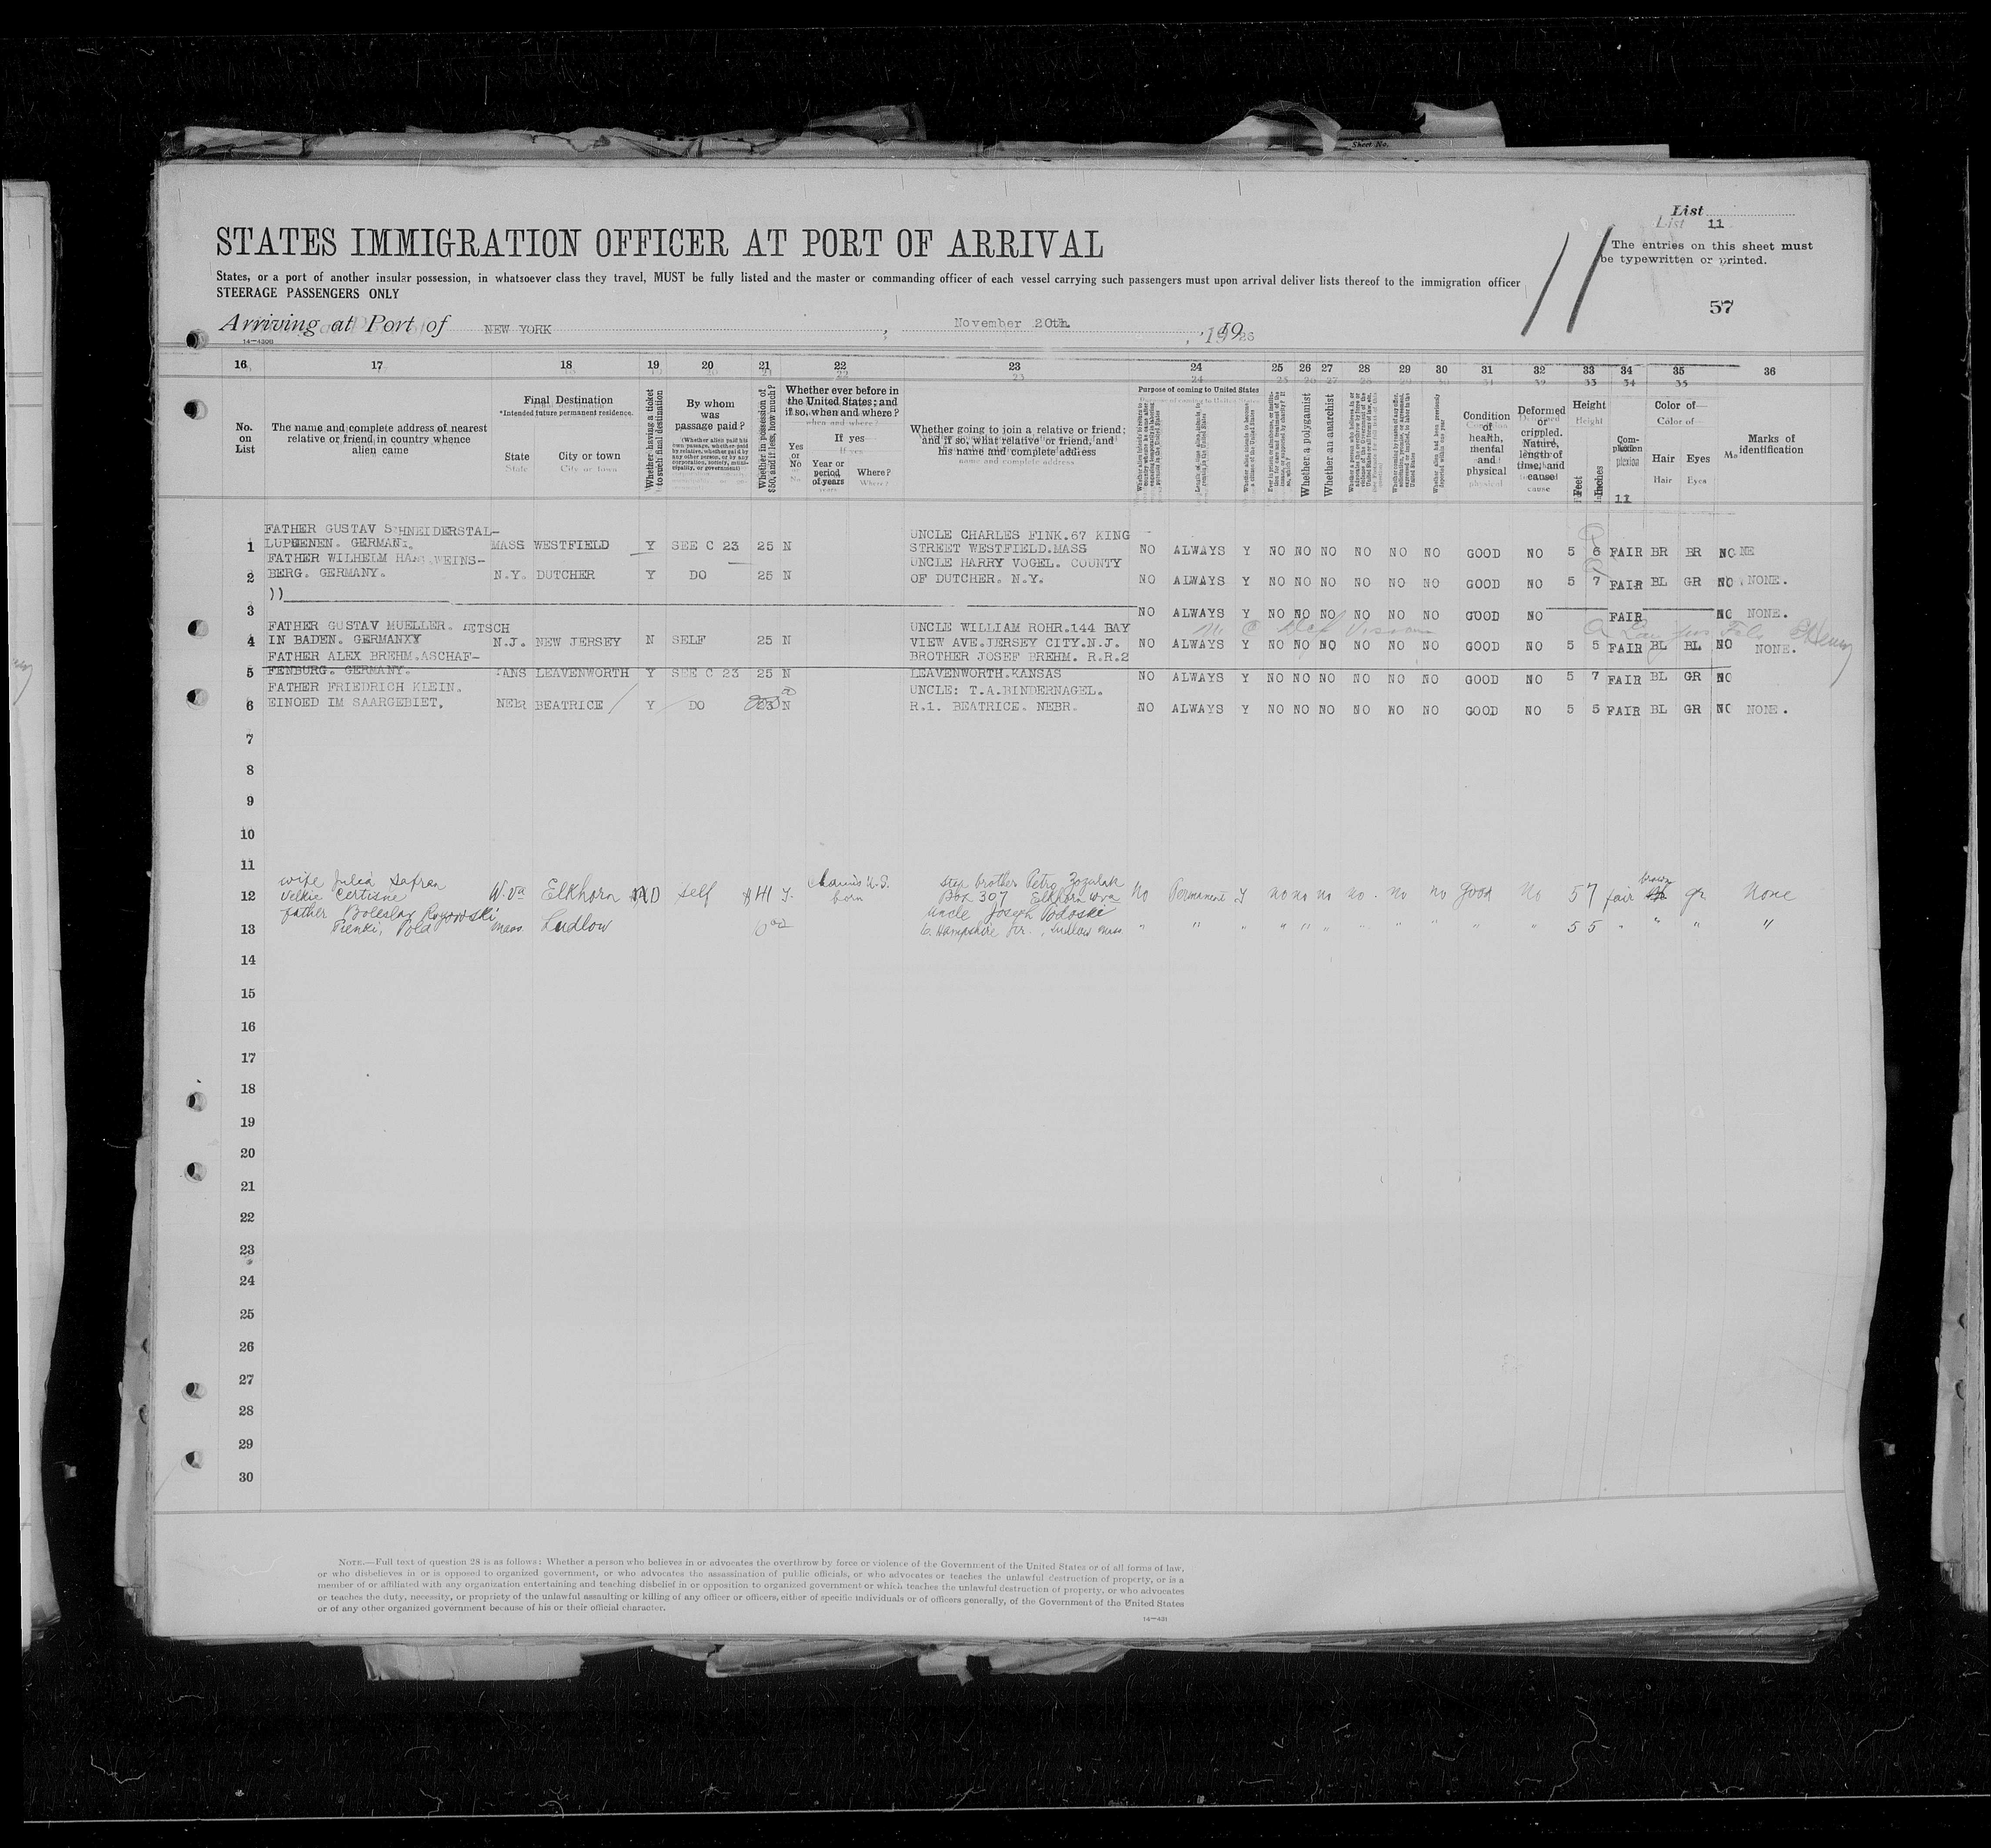 Sheet No.
List
List 11
STATES IMMIGRATION OFFICER AT PORT OF ARRIVAL
The entries on this sheet must
be typewritten or printed.
States, or a port of another insular possession, in whatsoever class they travel, MUST be fully listed and the master or commanding officer of each vessel carrying such passengers must upon arrival deliver lists thereof to the immigration officer
STEERAGE PASSENGERS ONLY
11
57
Arriving at Port of NEW YORK , November 20th. , 19 26
14—4306
16 17 18 19 20 21 22 23 24 25 26 27 28 29 30 31 32 33 34 35 36
No. on List
The name and complete address of nearest relative or friend in country whence alien came
Final Destination
*Intended future permanent residence.
State
City or town
Whether having a ticket to such final destination
By whom was passage paid?
Whether in possession of $50, and if less, how much?
Whether ever before in the United States; and if so, when and where?
Yes or No
If yes
Year or period of years
Where?
Whether going to join a relative or friend; and if so, what relative or friend, and his name and complete address
Purpose of coming to United States
Whether a polygamist
Whether an anarchist
Condition of health, mental and physical
Deformed or crippled. Nature, length of time, and cause
Height
Feet
Inches
Complexion
11
Color of—
Hair
Eyes
Marks of identification
FATHER GUSTAV SCHNEIDERSTAL- UNCLE CHARLES FINK.67 KING
1 LUPOENEN. GERMANY. MASS WESTFIELD Y SEE C 23 25 N STREET WESTFIELD.MASS NO ALWAYS Y NO NO NO NO NO NO GOOD NO 5 6 FAIR BR BR NONE
FATHER WILHELM HAAG.WEINS- UNCLE HARRY VOGEL. COUNTY
2 BERG. GERMANY. N.Y. DUTCHER Y DO 25 N OF DUTCHER. N.Y. NO ALWAYS Y NO NO NO NO NO NO GOOD NO 5 7 FAIR BL GR NO NONE.
3 )) NO ALWAYS Y NO NO NO NO NO NO GOOD NO FAIR NO NONE.
FATHER GUSTAV MUELLER. IETSCH UNCLE WILLIAM ROHR.144 BAY
4 IN BADEN. GERMANXY N.J. NEW JERSEY N SELF 25 N VIEW AVE.JERSEY CITY.N.J. NO ALWAYS Y NO NO NO NO NO NO GOOD NO 5 5 FAIR BL BL NO NONE.
FATHER ALEX BREHM.ASCHAF- BROTHER JOSEF BREHM. R.R.2
5 FENBURG. GERMANY. KANS LEAVENWORTH Y SEE C 23 25 N LEAVENWORTH.KANSAS NO ALWAYS Y NO NO NO NO NO NO GOOD NO 5 7 FAIR BL GR NO
FATHER FRIEDRICH KLEIN. UNCLE: T.A.BINDERNAGEL.
6 EINOED IM SAARGEBIET. NEBR BEATRICE Y DO N R.1. BEATRICE. NEBR. NO ALWAYS Y NO NO NO NO NO NO GOOD NO 5 5 FAIR BL GR NO NONE.
7
8
9
10
11
wife Julia Safran Claims U.S. Step brother Petro Zozulak brown
12 Velkie Certisne W.Va Elkhorn NO self $41 Y. born Box 307 Elkhorn W va No Permanent Y no no no no no no good No 5 7 fair gr None
father Boleslav Rogowski Uncle Joseph Podoski
13 Pienki, Pold Mass. Ludlow 6. Hampshire Str., Ludlow Mass " " " " " " " " " " " 5 5 " " " "
14
15
16
17
18
19
20
21
22
23
24
25
26
27
28
29
30
NOTE.—Full text of question 28 is as follows: Whether a person who believes in or advocates the overthrow by force or violence of the Government of the United States or of all forms of law,
or who disbelieves in or is opposed to organized government, or who advocates the assassination of public officials, or who advocates or teaches the unlawful destruction of property, or is a
member of or affiliated with any organization entertaining and teaching disbelief in or opposition to organized government or which teaches the unlawful destruction of property, or who advocates
or teaches the duty, necessity, or propriety of the unlawful assaulting or killing of any officer or officers, either of specific individuals or of officers generally, of the Government of the United States
or of any other organized government because of his or their official character.
14—431